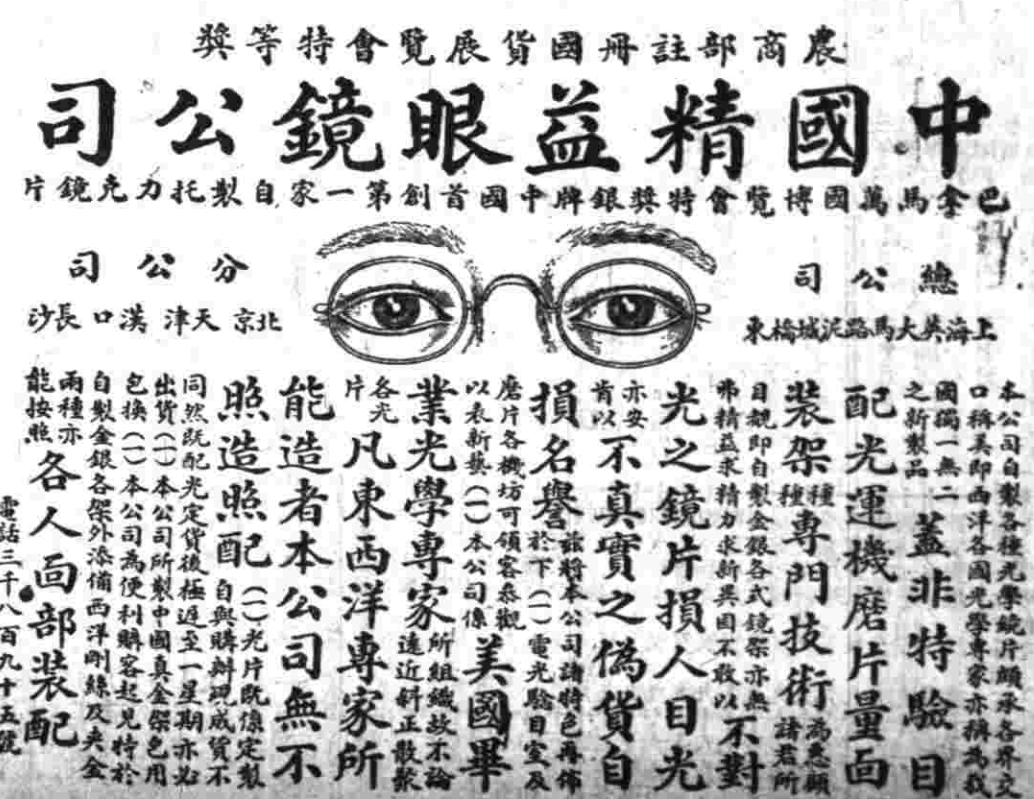 農商部註冊國貨展覽會特等獎
中國精益眼鏡公司
巴拿馬萬國博覽會特獎銀牌中國首創第一家自製托力克鏡片
總公司
上海英大馬路泥城橋東
分公司
北京 天津 漢口 長沙
本公司自製各種光學鏡片頗承各界交
口稱美即西洋各國光學專家亦稱為我
國獨一無二
之新製品
蓋非特驗目
配光運機磨片量面
裝架種種專門技術為惠顧諸君所
目觀即自製金銀各式鏡架亦無
弗精益求精力求新異固不敢以不對
光之鏡片損人目光
亦安肯以不真實之偽貨自
損名譽茲將本公司諸特色再佈於下(一)電光驗目室及
磨片各機坊可領客參觀
以表新藝(一)本公司係美國畢
業光學專家所組織故不論遠近斜正散聚
各光片凡東西洋專家所
能造者本公司無不
照造照配(一)光片既係定製自與購辦現成貨不
同然既配光定貨後極遲至一星期亦必
出貨(一)本公司所製中國真金架包用
包換(一)本公司為便利購客起見特於
自製金銀各架外添備西洋剛絲及夾金
兩種亦
能按照各人面部裝配
電話三千八百九十五號